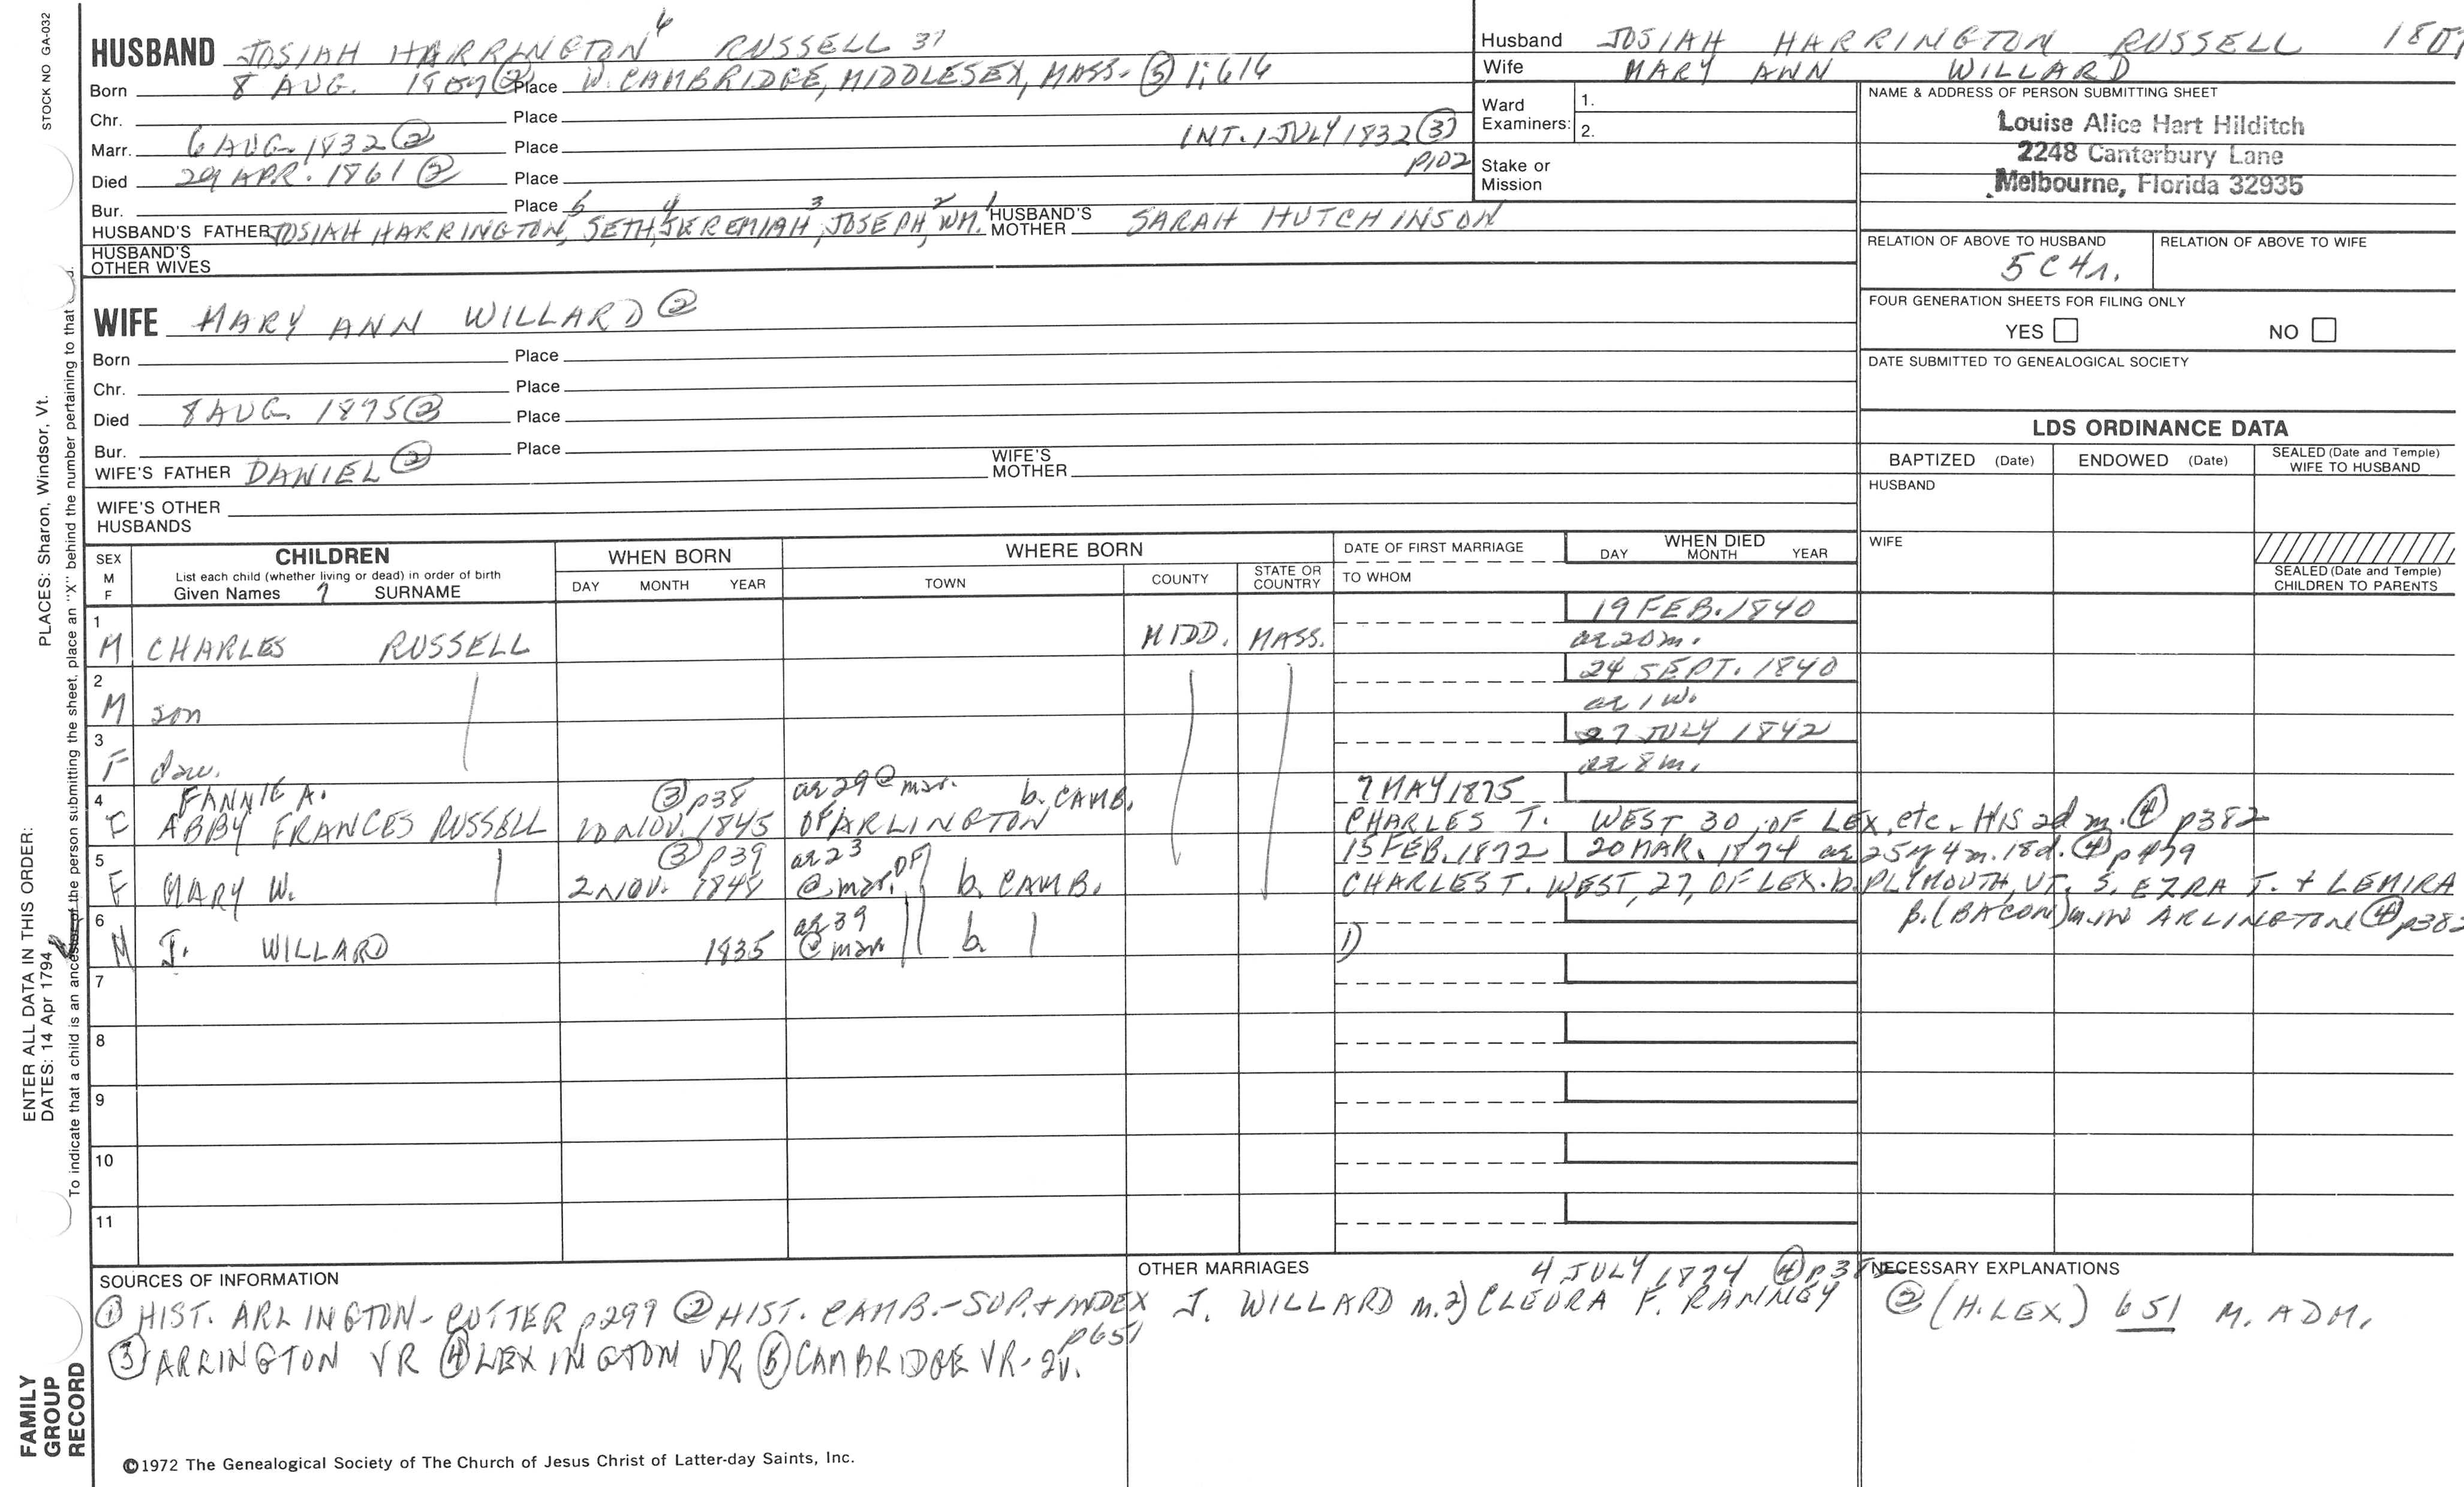 STOCK NO GA-032
HUSBAND JOSIAH HARRINGTON 6 RUSSELL 37
Born 8 AUG. 1807 ② Place W. CAMBRIDGE, MIDDLESEX, MASS- ⑤ 1:616
Chr. Place
Marr. 6 AUG. 1832 ② Place INT. 1 JULY 1832 ③
p102
Died 29 APR. 1861 ② Place
Bur. Place
HUSBAND'S FATHER JOSIAH HARRINGTON 5, SETH 4, JEREMIAH 3, JOSEPH 2, WM. 1 HUSBAND'S MOTHER SARAH HUTCHINSON
HUSBAND'S OTHER WIVES
WIFE MARY ANN WILLARD ②
Born Place
Chr. Place
Died 8 AUG. 1895 ② Place
Bur. Place
WIFE'S FATHER DANIEL ② WIFE'S MOTHER
WIFE'S OTHER HUSBANDS
Husband JOSIAH HARRINGTON RUSSELL 1807
Wife MARY ANN WILLARD
Ward Examiners: 1.
2.
Stake or Mission
NAME & ADDRESS OF PERSON SUBMITTING SHEET
Louise Alice Hart Hilditch
2248 Canterbury Lane
Melbourne, Florida 32935
RELATION OF ABOVE TO HUSBAND RELATION OF ABOVE TO WIFE
5C4r.
FOUR GENERATION SHEETS FOR FILING ONLY
YES NO
DATE SUBMITTED TO GENEALOGICAL SOCIETY
LDS ORDINANCE DATA
BAPTIZED (Date) ENDOWED (Date) SEALED (Date and Temple) WIFE TO HUSBAND
HUSBAND
WIFE
SEALED (Date and Temple) CHILDREN TO PARENTS
SEX M F
CHILDREN
List each child (whether living or dead) in order of birth
Given Names 7 SURNAME
WHEN BORN
DAY MONTH YEAR
WHERE BORN
TOWN COUNTY STATE OR COUNTRY
DATE OF FIRST MARRIAGE
TO WHOM
WHEN DIED
DAY MONTH YEAR
1 M CHARLES RUSSELL MIDD. MASS. 19 FEB. 1840
ae 20 m.
2 M son 24 SEPT. 1840
ae 1 w.
3 F dau. 27 JULY 1842
ae 8 m.
4 F FANNIE A. ③ p38 ae 29 @ mar. b. CAMB. 7 MAY 1875
ABBY FRANCES RUSSELL 10 NOV. 1845 OF ARLINGTON CHARLES T. WEST 30, OF LEX, etc. His 2d m. ④ p382
5 F MARY W. ③ p39 ae 23 @ mar. OF b. CAMB. 15 FEB. 1872 20 MAR. 1874 ae 25 y 4 m. 18 d. ④ p 479
2 NOV. 1848 CHARLES T. WEST, 27, OF LEX. b. PLYMOUTH, VT. S. EZRA T. + LEMIRA
B. (BACON) m. IN ARLINGTON ④ p382
6 M J. WILLARD 1835 ae 39 @ mar b. 1)
7
8
9
10
11
SOURCES OF INFORMATION
① HIST. ARLINGTON- CUTTER p299 ② HIST. CAMB.-SUP. + INDEX p651
③ ARRINGTON VR ④ LEXINGTON VR ⑤ CAMBRIDGE VR-2v.
OTHER MARRIAGES
4 JULY 1874 ④ p382
J. WILLARD m. 2) CLEORA F. RANNEY
NECESSARY EXPLANATIONS
② (H. LEX.) 651 M. ADM.
©1972 The Genealogical Society of The Church of Jesus Christ of Latter-day Saints, Inc.
ENTER ALL DATA IN THIS ORDER:
DATES: 14 Apr 1794 PLACES: Sharon, Windsor, Vt.
To indicate that a child is an ancestor of the person submitting the sheet, place an "X" behind the number pertaining to that
FAMILY GROUP RECORD